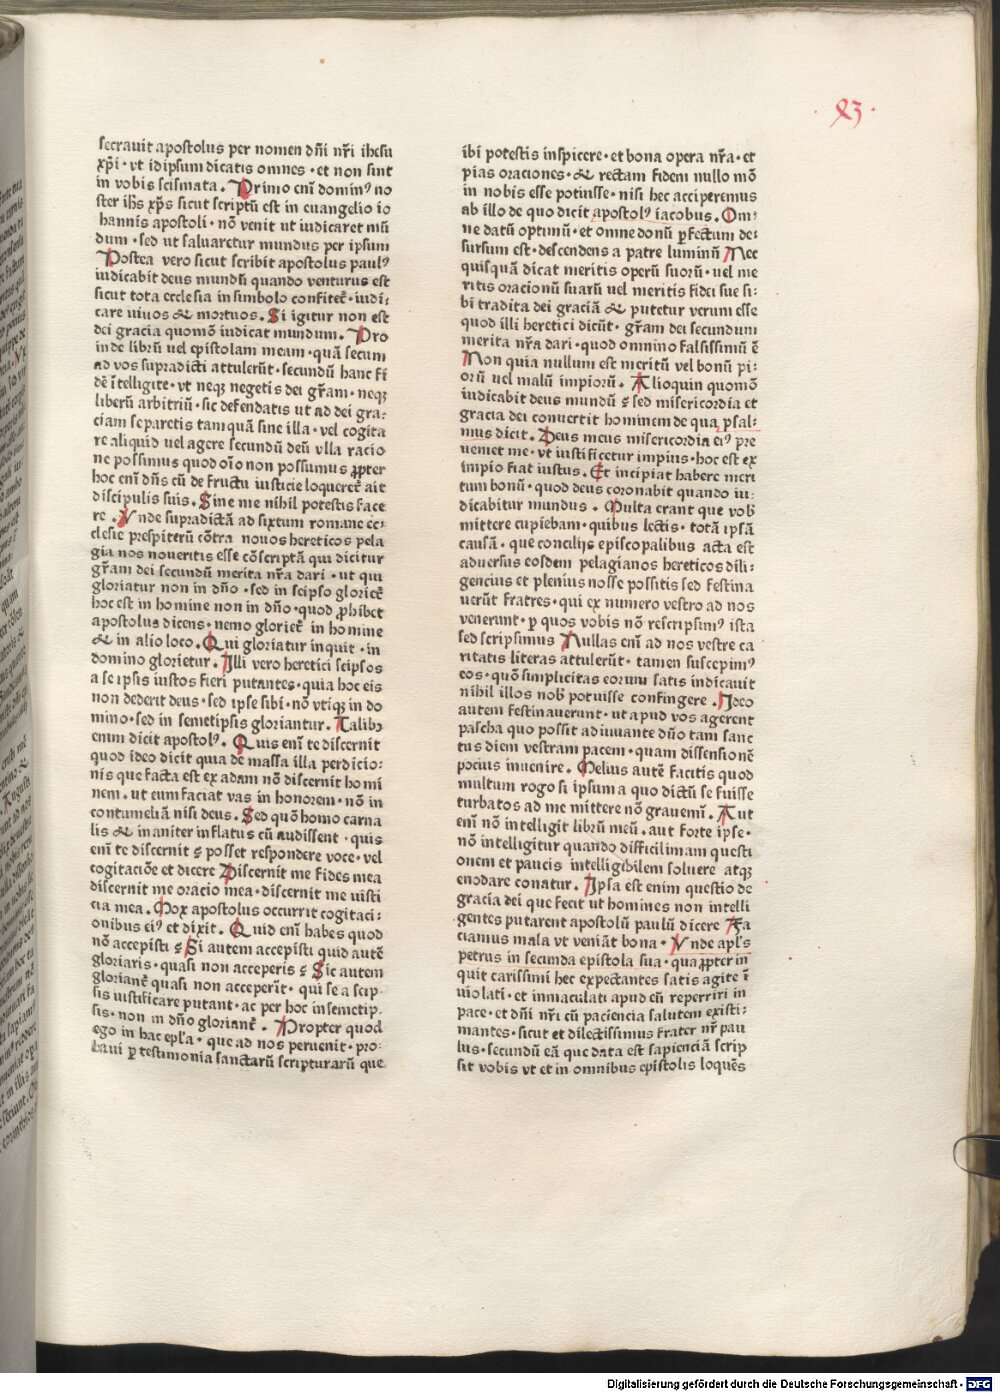 ·83·
secrauit apostolus per nomen dn̄i nr̄i ihesu
xp̄i · vt idipsum dicatis omnes · et non sint
in vobis scismata . Primo em̄ domin⁹ no
ster ih̄s xp̄s sicut scriptū est in euangelio io
hannis apostoli · nō venit ut iudicaret mū
dum · sed ut saluaretur mundus per ipsum
Postea vero sicut scribit apostolus paul⁹
iudicabit deus mundū quando venturus est
sicut tota ecclesia in simbolo confitet᷑ · iudi⸗
care uiuos & mortuos . Si igitur non est
dei gracia quomō iudicat mundum . Pro
inde librū uel epistolam meam · quā secum
ad vos supradicti attulerūt · secundū hanc fi
dē ītelligite · vt neqꝫ negetis dei gr̄am · neqꝫ
liberū arbitriū · sic defendatis ut ad dei gra⸗
ciam separetis tamquā sine illa · vel cogita
re aliquid uel agere secundū deū vlla racio
ne possimus quod oīo non possumus ꝓpter
hoc em̄ dn̄s cū de fructu iusticie loqueret᷑ ait
discipulis suis . Sine me nihil potestis face
re . Vnde supradictā ad sixtum romane ec⸗
clesie prespiterū cōtra nouos hereticos pela
gia nos noueritis esse cōscriptā qui dicitur
gr̄am dei secundū merita nr̄a dari · ut qui
gloriatur non in dn̄o · sed in seipso gloriet᷑
hoc est in homine non in dn̄o · quod ꝓhibet
apostolus dicens · nemo gloriet᷑ in homine
& in alio loco . Qui gloriatur inquit · in
domino glorietur . Illi vero heretici seipsos
a se ipsis iustos fieri putantes · quia hoc eis
non dederit deus · sed ipse sibi · nō vtiqꝫ in do
mino · sed in semetipsis gloriantur . Talibꝫ
enim dicit apostol⁹ . Quis eni̅ te discernit
quod ideo dicit quia dē massa illa perdicio⸗
nis que facta est ex adam nō discernit homi
nem · ut eum faciat vas in honorem · nō in
contumeliā nisi deus . Sed quō homo carna
lis & inaniter inflatus cū audissent · quis
eni̅ te discernit ꝫ posset respondere voce · vel
cogitaciōe et dicere Discernit me fides mea
discernit me oracio mea · discernit me iusti
cia mea . Mox apostolus occurrit cogitaci⸗
onibus ei⁹ et dixit . Quid eni̅ habes quod
nō accepisti ꝫ Si autem accepisti quid autē
gloriaris · quasi non acceperis ꝫ Sic autem
gloriant᷑ quasi non acceperīt · qui se a seip⸗
sis iustificare putant · ac per hoc in semetip⸗
sis · non in dn̄o gloriant᷑ . Propter quod
ego in hac epl̄a · que ad nos peruenit · pro⸗
baui ꝑ testimonia sanctarū scripturarū que
ibi potestis inspicere · et bona opera nr̄a · et
pias oraciones · & rectam fidem nullo mō
in nobis esse potuisse · nisi hec acciperemus
ab illo de quo dicit apostol⁹ iacobus . Om⸗
ne datū optimū · et omne donū ꝑfectum de⸗
sursum est · descendens a patre luminū Nec
quisquā dicat meritis operū suorū · uel me
ritis oracionū suarū uel meritis fidei sue si⸗
bi tradita dei graciā & putetur verum esse
quod illi heretici dicūt · gr̄am dei secundum
merita nr̄a dari · quod omnino falsissimū ē
Non quia nullum est meritū vel bonū pi⸗
orū uel malū impiorū . Alioquin quomō
iudicabit deus mundū ꝫ sed misericordia et
gracia dei conuertit hominem de qua psal⸗
mus dicit . Deus meus misericordia ei⁹ pre
ueniet me · vt iustificetur impius · hoc est ex
impio fiat iustus . Et incipiat habere meri
tum bonū · quod deus coronabit quando iu⸗
dicabitur mundus . Multa erant que vob̄
mittere cupiebam · quibus lectis · totā ipsā
causā · que concilijs episcopalibus acta est
aduersus eosdem pelagianos hereticos dili⸗
gencius et plenius nosse possitis sed festina
uerūt fratres · qui ex numero vestro ad nos
venerunt · ꝑ quos vobis nō rescripsim⁹ ista
sed scripsimus Nullas eni̅ ad nos vestre ca
ritatis literas attulerūt · tamen suscepim⁹
eos · quō simplicitas eorum satis indicauit
nihil illos nob̄ potuisse confingere . Ideo
autem festinauerunt · ut apud vos agerent
pascha quo possit adiuuante dn̄o tam sanc
tus diem vestram pacem · quam dissensionē
pocius inuenire . Melius autē facitis quod
multum rogo si ipsum a quo dictū se fuisse
turbatos ad me mittere nō grauemī . Aut
eni̅ nō intelligit librū meū . aut forte ipse ·
nō intelligitur quando difficilimam questi
onem et paucis intelligibilem soluere atqꝫ
enodare conatur . Ipsa est enim questio de
gracia dei que fecit ut homines non intelli
gentes putarent apostolū paulū dicere Fa
ciamus mala vt veniāt bona · Vnde apl̄s
petrus in secunda epistola sua · qua ꝓpter in̄
quit carissimi hec expectantes satis agite ī
uiolati · et inmaculati apud eū reperriri in
pace · et dn̄i nr̄i cū paciencia salutem existi⸗
mantes · sicut et dilectissimus frater nr̄ pau
lus · secundū eā que data est sapienciā scrip
sit vobis vt et in omnibus epistolis loquēs
Digitalisierung gefördert durch die Deutsche Forschungsgemeinschaft - DFG